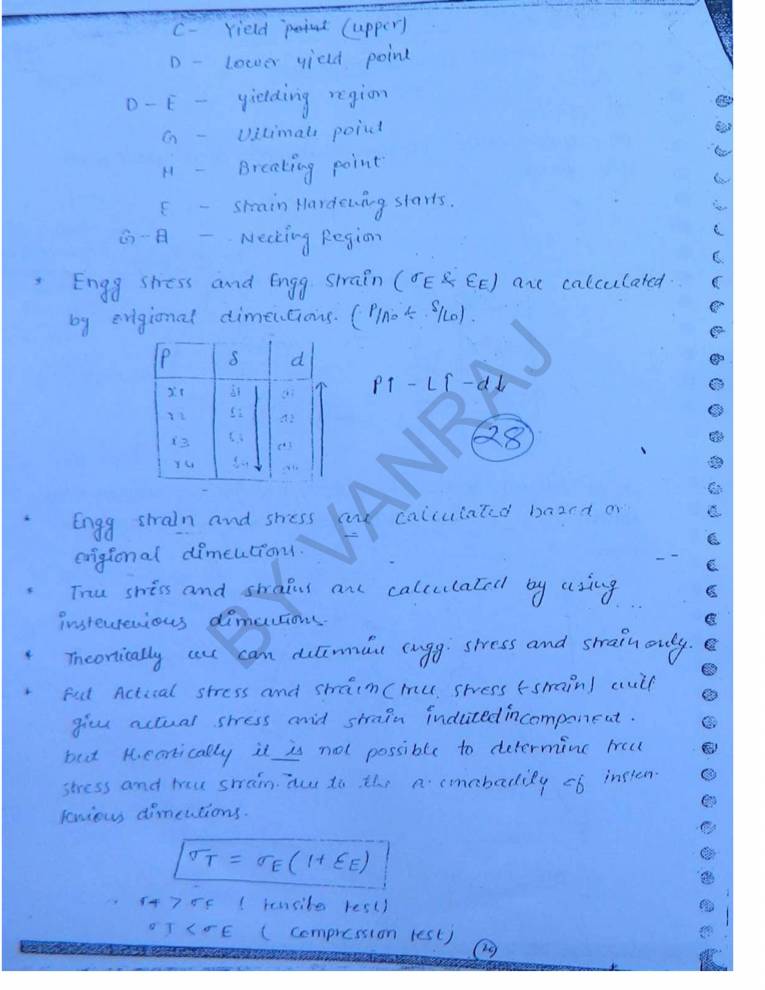 C- Yield point (upper)
D - Lower yield point
D-E - yielding region
G - Ultimate point
H - Breaking point
E - Strain Hardening starts.
G-H - Necking Region
* Engg stress and Engg. Strain (σE & εE) are calculated
by origional dimentions. (P/A0 & δ/L0).
P δ d
x1 δ1 d1
x2 δ2 d2
x3 δ3 d3
x4 δ4 d4
P↑ - L↑ - d↓
28
* Engg strain and stress are calculated based on
origional dimentions.
* True stress and strains are calculated by using
dimentions.
* Theortically we can determine engg. stress and strain only.
* But Actual stress and strain (true stress & strain) will
give actual stress and strain induted in component.
but theortically it is not possible to determine true
stress and true strain due to the of insten-
tenious dimentions.
σT = σE (1+ εE)
σT > σE ( tensile test)
σT < σE ( compression test)
BY VANRAJ